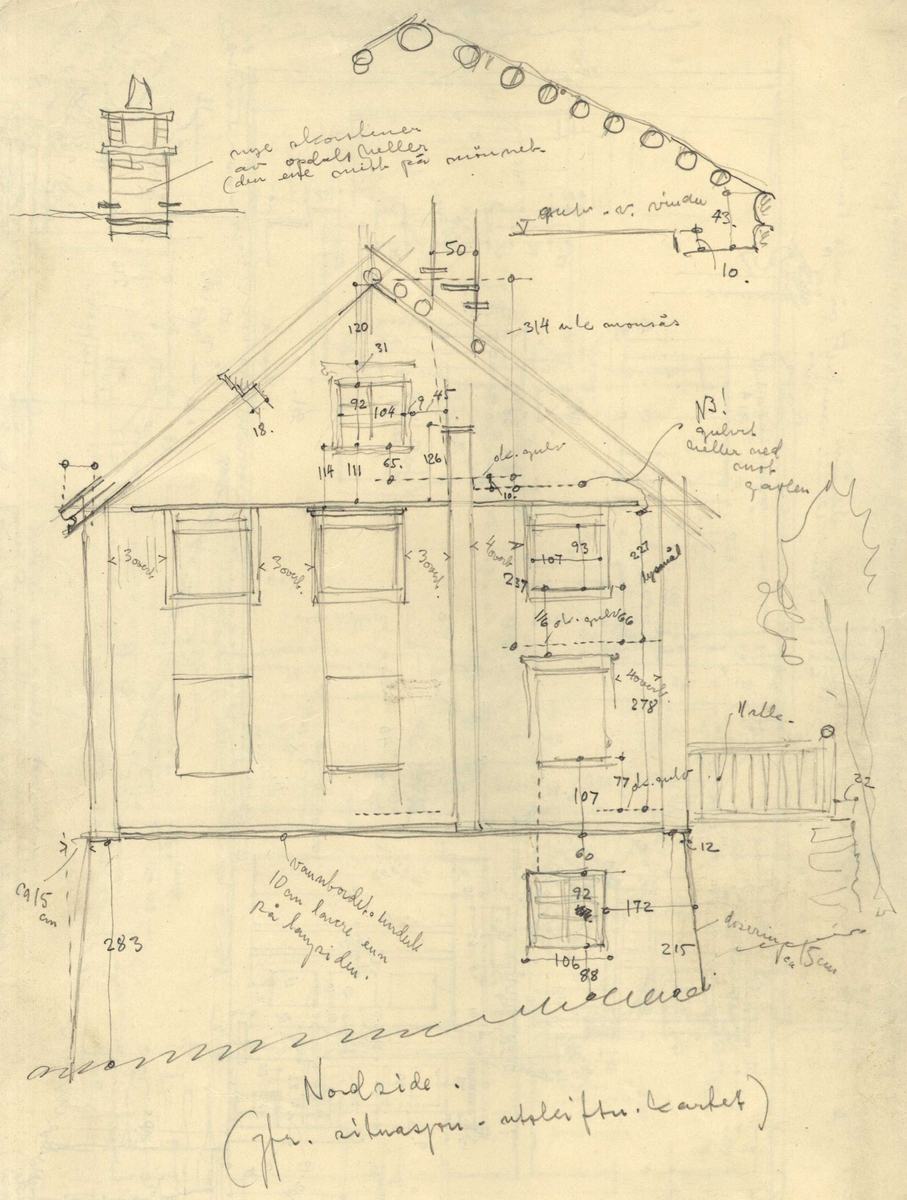 nye skorstener
av opdalsheller
(den ene midt på mønnet.
gulv. v. vindu
43.
10.
50
314 u k monsås
120
31
92
104
9
45
18.
114
111
65.
126
ok. gulv
10.
NB!
gulvet
heller ned
mot
gavlen
3 overl.
3 overl.
3 overl.
4 overl.
107
93
227
lysmål
237
116
ok. gulv
66
4 overl.
278
Halle.
77
ok. gulv
107
22
60
12
ca 15
cm
283
vannbordet. underk
10 cm lavere enn
på langsiden.
92
172
106
88
215
dosering
ca 15 cm
Nordside.
(jfr. situasjon - utskiftn. kartet)